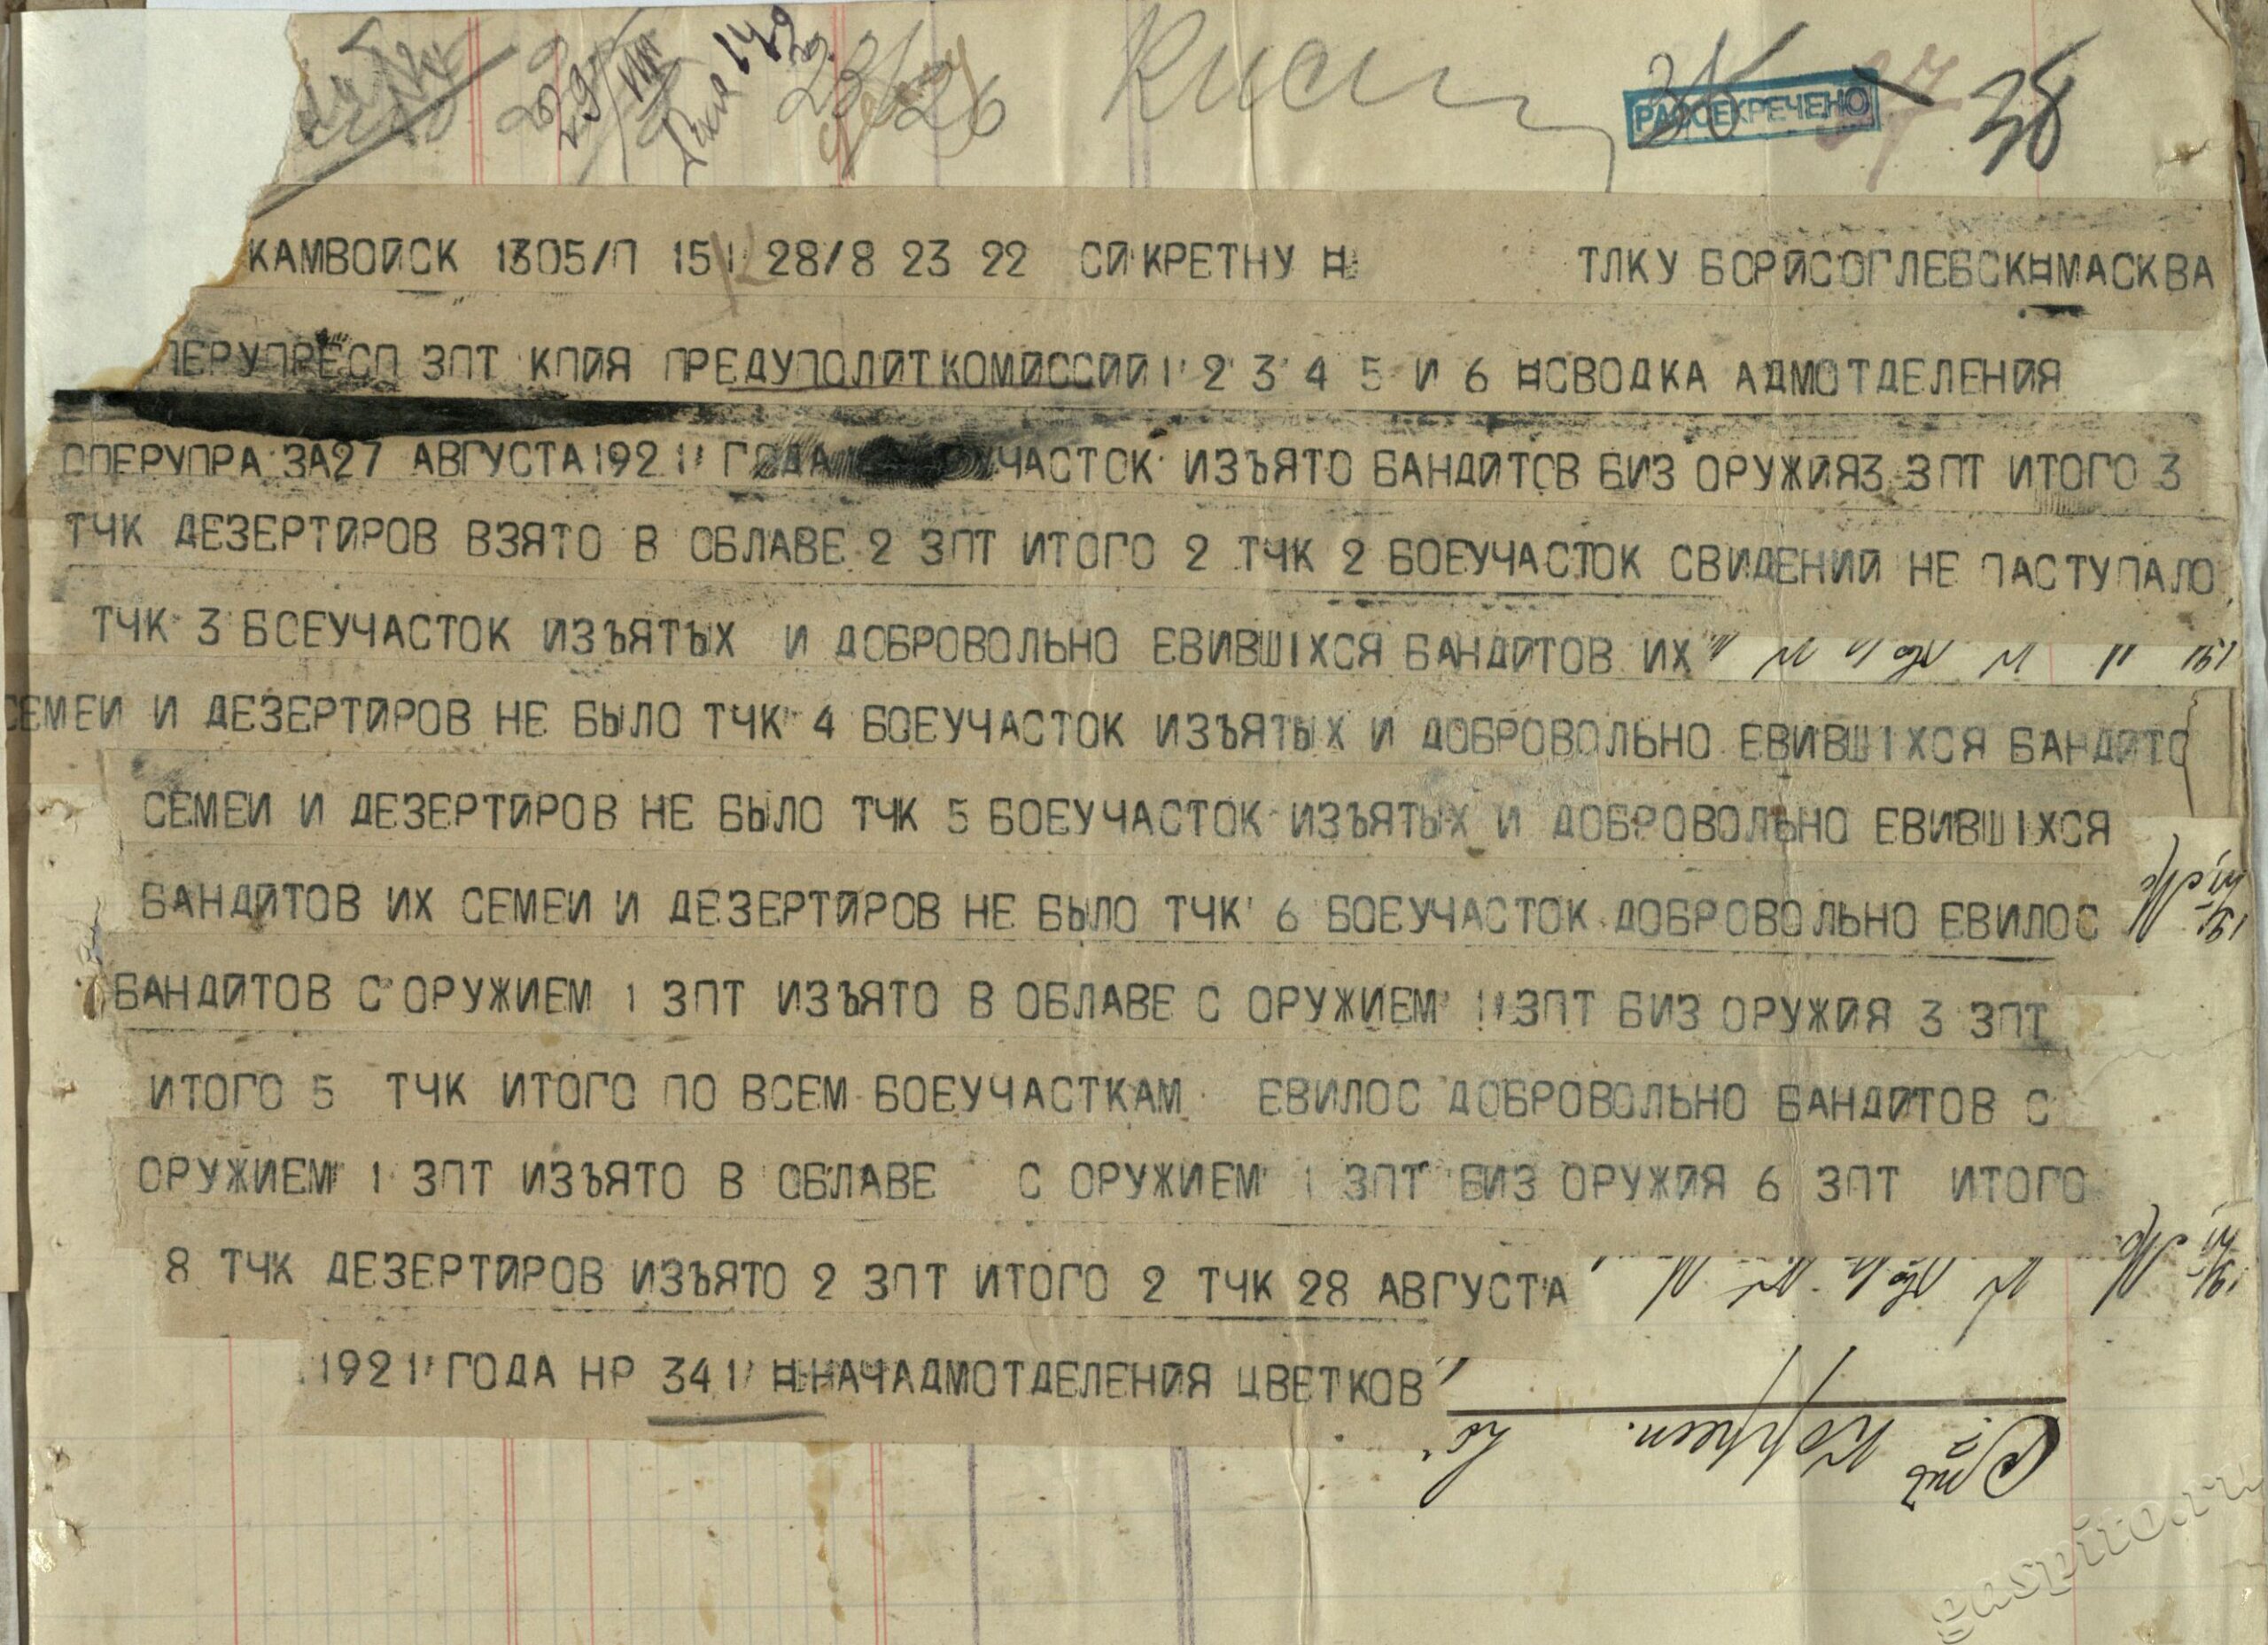 23/26
РАССЕКРЕЧЕНО 38
КАМВОЙСК 1305/П 151 28/8 23 22 СИКРЕТНУ ¤ ТЛКУ БОРИСОГЛЕБСК¤МАСКВА
ПЕРУПРЕСП ЗПТ КПИЯ ПРЕДУПОЛИТКОМИССИЙ 1 2 3 4 5 И 6 ¤СВОДКА АДМОТДЕЛЕНИЯ
ОПЕРУПРА ЗА27 АВГУСТА 1921 ГОДА УЧАСТОК ИЗЪЯТО БАНДИТОВ БИЗ ОРУЖИЯ3 ЗПТ ИТОГО 3
ТЧК ДЕЗЕРТИРОВ ВЗЯТО В ОБЛАВЕ 2 ЗПТ ИТОГО 2 ТЧК 2 БОЕУЧАСТОК СВИДЕНИЙ НЕ ПАСТУПАЛО
ТЧК 3 БОЕУЧАСТОК ИЗЪЯТЫХ И ДОБРОВОЛЬНО ЕВИВШIХСЯ БАНДИТОВ ИХ
СЕМЕЙ И ДЕЗЕРТИРОВ НЕ БЫЛО ТЧК 4 БОЕУЧАСТОК ИЗЪЯТЫХ И ДОБРОВОЛЬНО ЕВИВШIХСЯ БАНДИТО
СЕМЕЙ И ДЕЗЕРТИРОВ НЕ БЫЛО ТЧК 5 БОЕУЧАСТОК ИЗЪЯТЫХ И ДОБРОВОЛЬНО ЕВИВШIХСЯ
БАНДИТОВ ИХ СЕМЕЙ И ДЕЗЕРТИРОВ НЕ БЫЛО ТЧК 6 БОЕУЧАСТОК ДОБРОВОЛЬНО ЕВИЛОС
БАНДИТОВ С ОРУЖИЕМ 1 ЗПТ ИЗЪЯТО В ОБЛАВЕ С ОРУЖИЕМ 1 ЗПТ БИЗ ОРУЖИЯ 3 ЗПТ
ИТОГО 5 ТЧК ИТОГО ПО ВСЕМ БОЕУЧАСТКАМ ЕВИЛОС ДОБРОВОЛЬНО БАНДИТОВ С
ОРУЖИЕМ 1 ЗПТ ИЗЪЯТО В ОБЛАВЕ С ОРУЖИЕМ 1 ЗПТ БИЗ ОРУЖИЯ 6 ЗПТ ИТОГО
8 ТЧК ДЕЗЕРТИРОВ ИЗЪЯТО 2 ЗПТ ИТОГО 2 ТЧК 28 АВГУСТА
1921 ГОДА НР 341 ¤НАЧАДМОТДЕЛЕНИЯ ЦВЕТКОВ
gaspito.ru